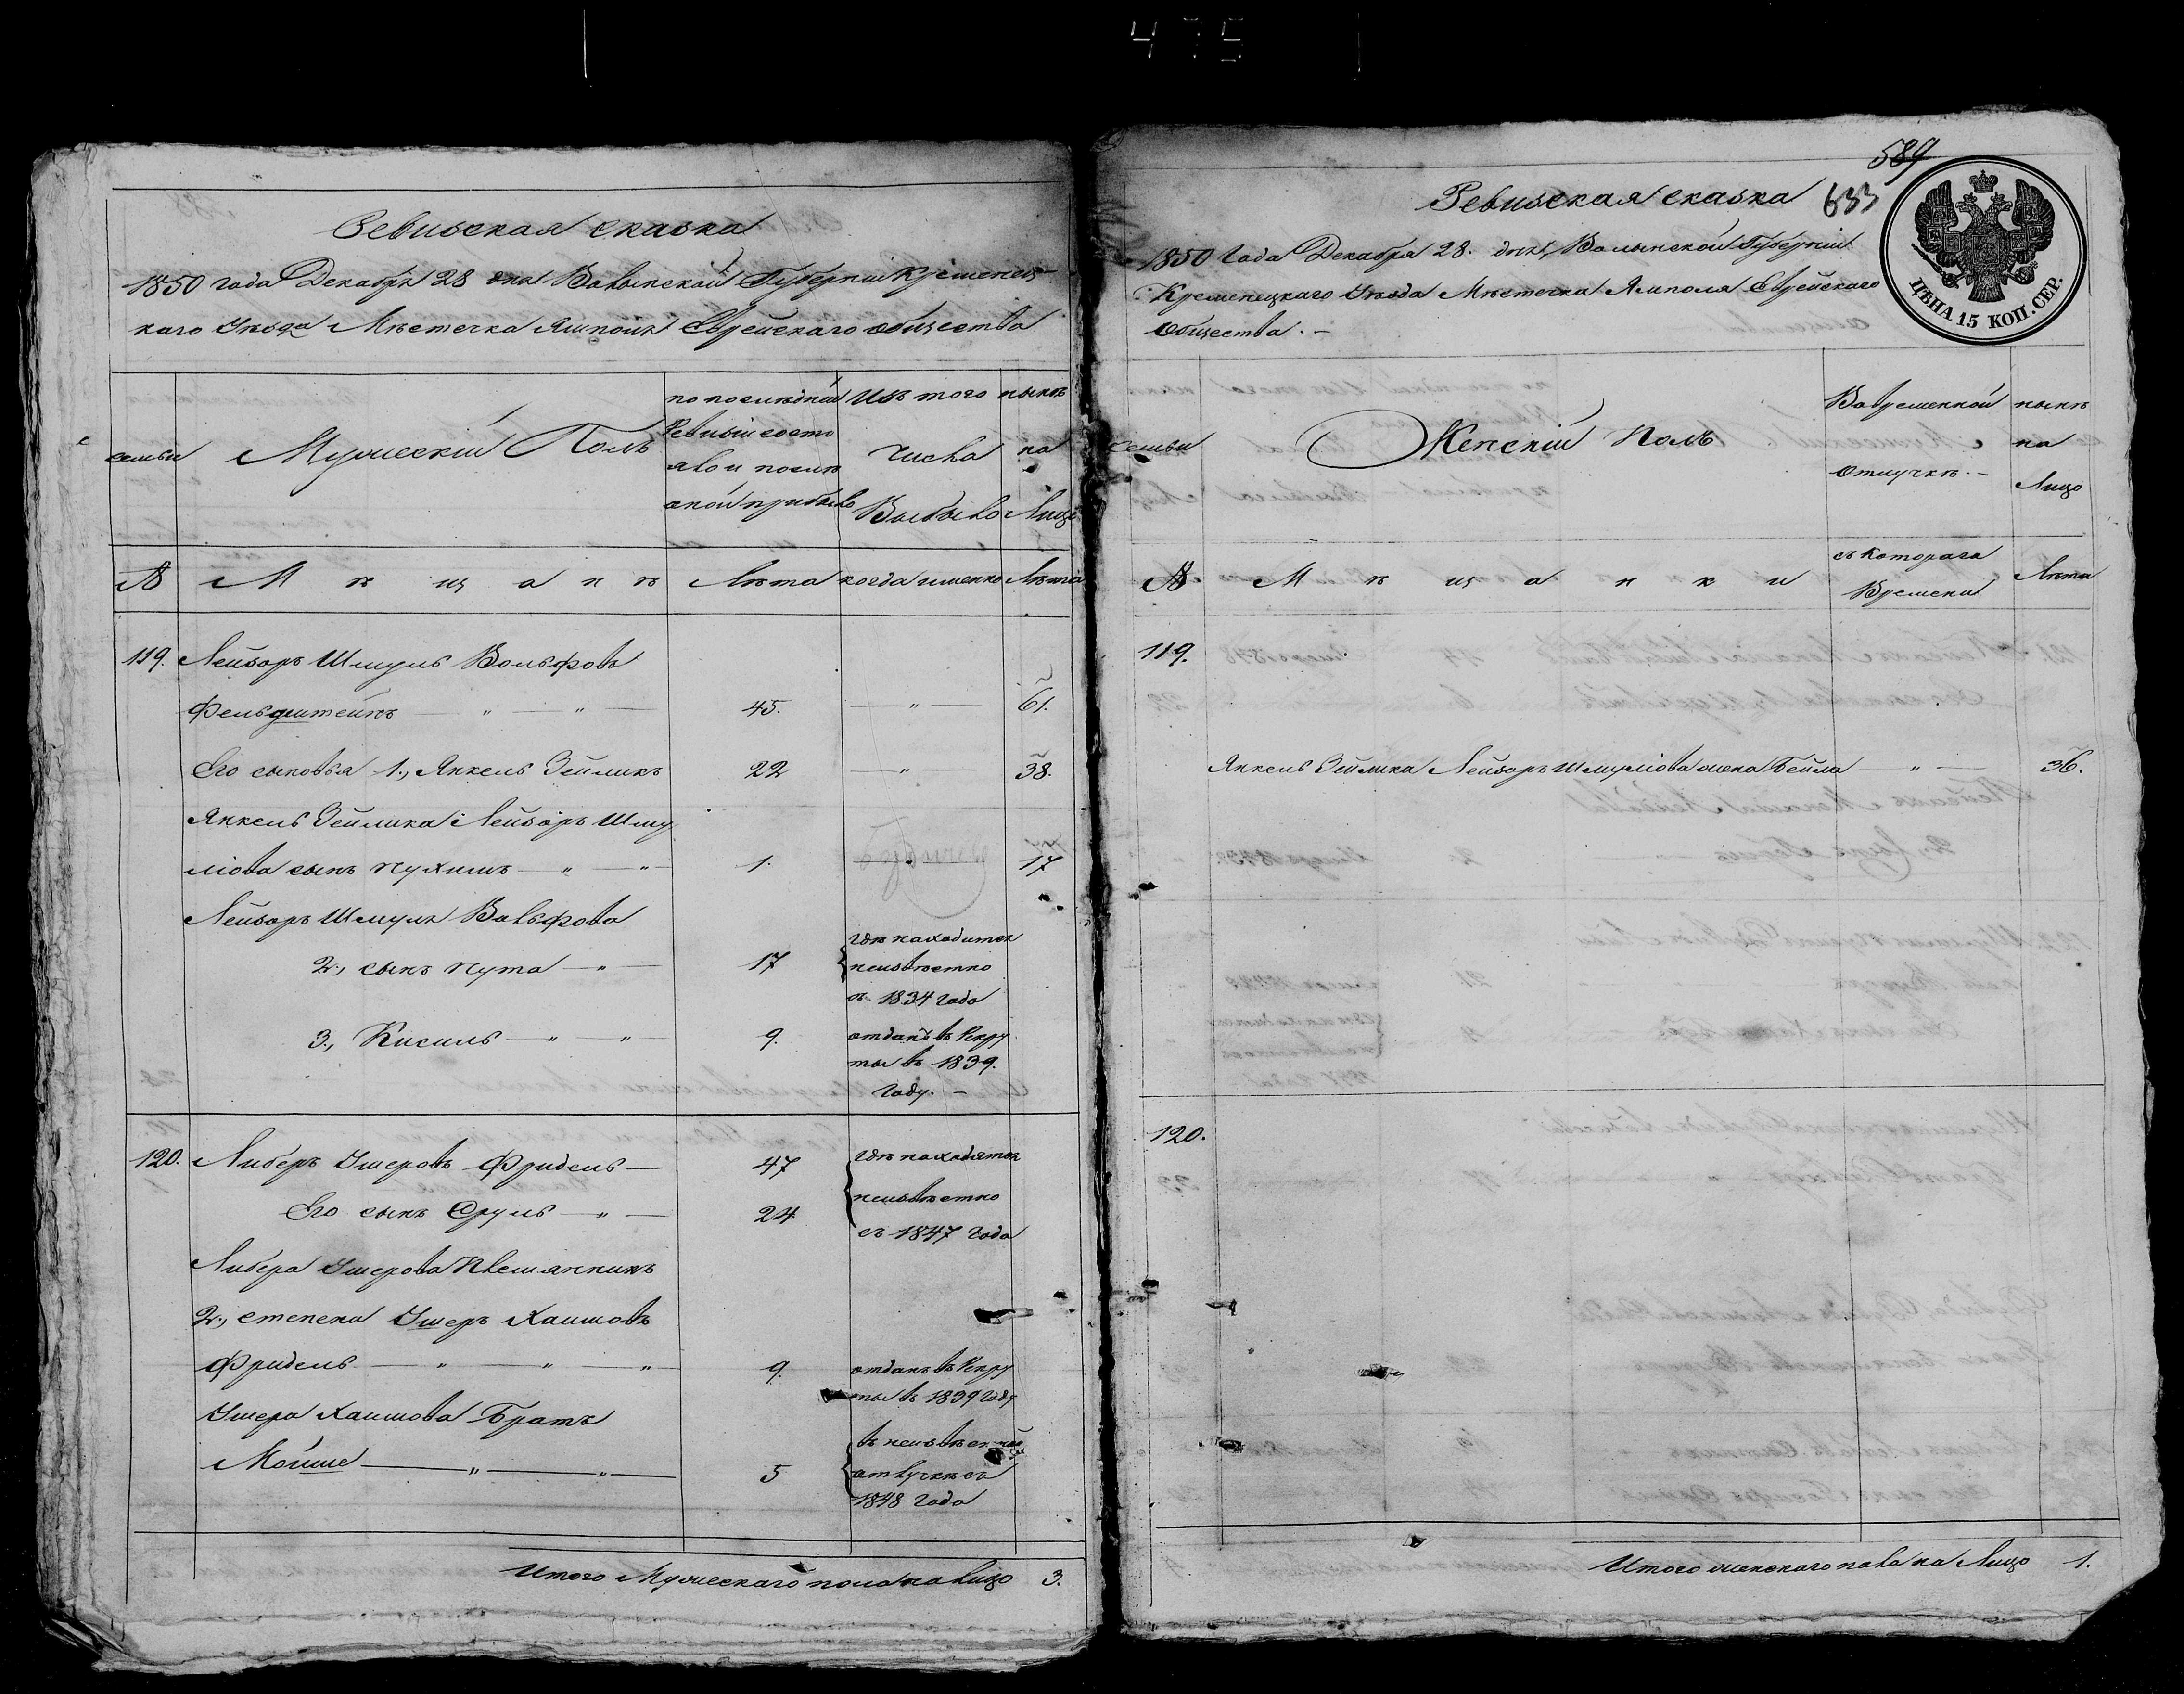 475
Ревизская сказка
1850 года Декабря 28 дня Волынской Губерніи Кременец-
каго Уезда Мѣстечка Ямполя Еврейскаго общества
семьи
Мужескій Полъ
по послѣдній
Ревизіи состо
яло и послѣ
оной прибыло
Изъ того
числа
Выбыло
нынѣ
на
Лицо
№
М ѣ щ а н ѣ
Лѣта
когда именно
Лѣта
119. Лейзоръ Шмуль Вольфовъ
Фельдштейнъ — " — " — 45. — " — 61.
Его сыновья 1., Янкель Зейликъ 22 — " — 38.
Янкель Зейлика Лейзоръ Шму
ліова сынъ Нухимъ — " — " 1. 17
Лейзоръ Шмуля Вольфова
2., сынъ Нута — " — 17 гдѣ находится
неизвѣстно
съ 1834 года
3., Кисиль — " — " — 9. отданъ въ Рекру
ты въ 1839.
Году. —
120. Либеръ Ушеровъ Фридель — 47 гдѣ находятся
Его сынъ Сруль — " — 24 неизвѣстно
съ 1847 года
Либера Ушерова Племянникъ
2., степени Ушеръ Хаимовъ
Фридель — " — " — " 9. отданъ въ Рекру
ты въ 1839 году
Ушера Хаимова Братъ
Мойше — " — " — 5 въ неизвѣстной
отлучкѣ съ
1848 года
Итого Мужескаго пола на лицо 3.
589
633
Ревизская сказка
1850 Года Декабря 28. дня, Волынской Губерніи
Кременецкаго Уѣзда Мѣстечка Ямполя Еврейскаго
Общества. —
ЦѢНА 15 КОП. СЕР.
Семьи
Женскій Полъ
Во временной
отлучкѣ. —
нынѣ
на
Лицо
№
М ѣ щ а н к и
съ котораго
Времени
Лѣта
119.
Янкель Зейлика Лейзоръ Шмуліова жена Бейла — " — 36.
120.
Итого женскаго пола на Лицо 1.